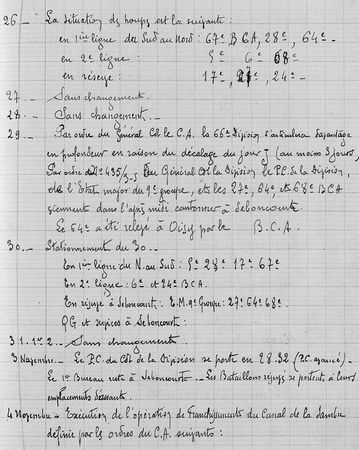 26 - La situation des troupes est la suivante :
en 1ère ligne du Sud au Nord : 67e BCA, 28e, 64e -
en 2e ligne : 5e 6e 68e
en réserve : 17e, 27e, 24e -
27. - Sans changement.
28. - Sans changement. -
29. - Par ordre du Général Ct le C.A. la 66e Division s'articulera davantage
en profondeur en raison du décalage du jour J (au moins 3 jours)
Par ordre du Général Ct la Division, le P.C. de la Division,
de l'Etat major du 9e groupe, et les 27e, 64e et 68e BCA
viennent dans l'après midi cantonner à Seboncourt.
Le 64e a été relevé à Oisy par le B.C.A.
30. - Stationnement du 30 -
En 1ère ligne du N. au Sud : 5e 28e 17e 67e
En 2e ligne : 6e et 24e BCA.
En réserve à Seboncourt : E.M. 9e Groupe : 27e 64e 68e
QG et services à Seboncourt :
31. 1er 2 - Sans changement.
3 Novembre - Le P.C. du Ct de la Division se porte en 28.92 (P.C. avancé) -
Le 1er Bureau reste à Seboncourt - Les Bataillons réservés se portent à leurs
emplacements
4 Novembre - Exécution de l'opération de Franchissement du Canal de la Sambre
définie par les ordres du C.A. suivants :